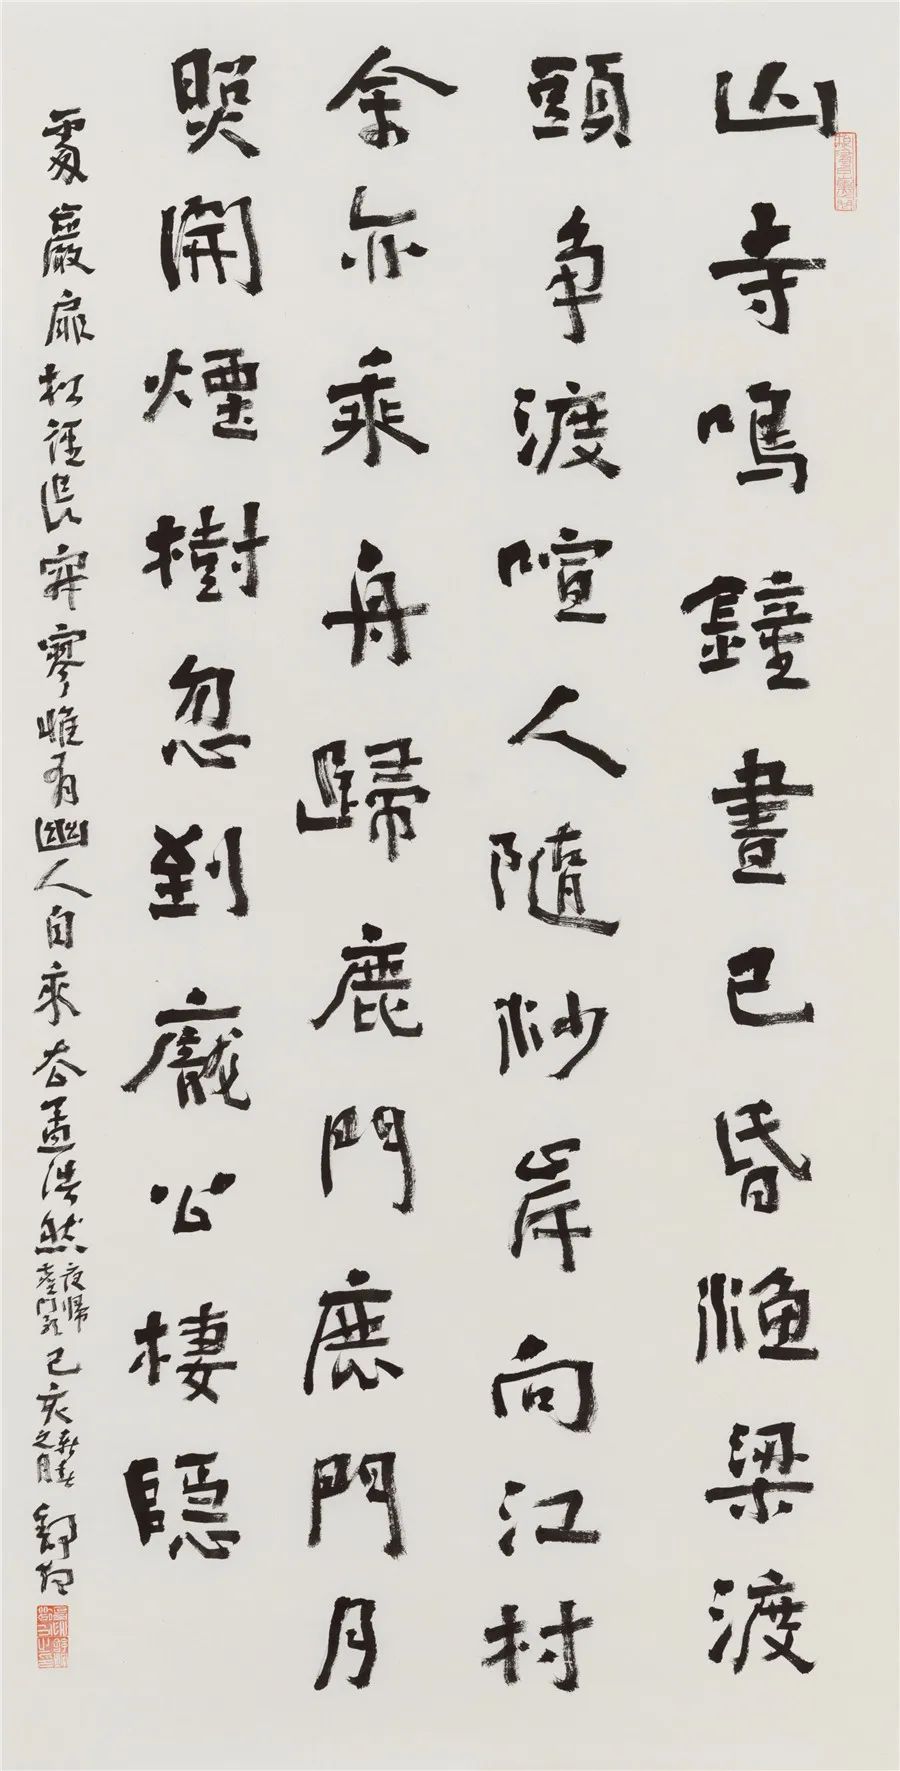 山寺鳴鐘晝已昏漁梁渡
頭争渡喧人隨沙岸向江村
余亦乘舟歸鹿門鹿門月
照開煙樹忽到龐公棲隱
處巖扉松徑長寂寥惟有幽人自來去孟浩然夜歸鹿門歌己亥新春之月